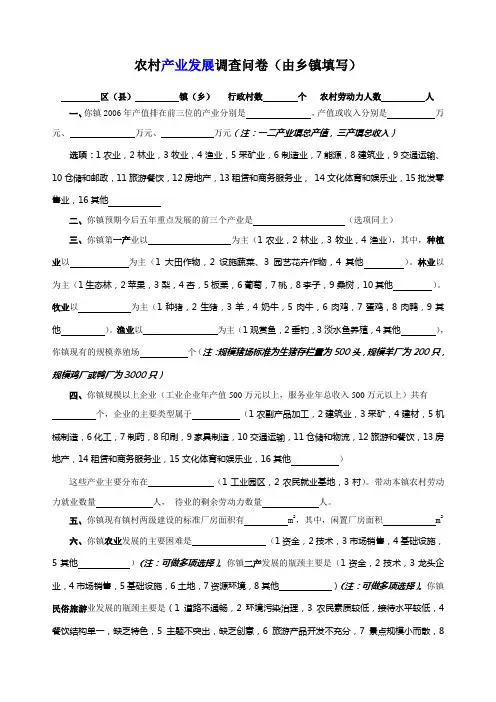 农村产业发展调查问卷（由乡镇填写）
区（县） 镇（乡） 行政村数 个 农村劳动力人数 人
一、你镇2006年产值排在前三位的产业分别是 、产值或收入分别是 万
元、 万元、 万元（注：一二产业填总产值，三产填总收入）
选项：1农业，2林业，3牧业，4渔业，5采矿业，6制造业，7能源，8建筑业，9交通运输、
10仓储和邮政，11旅游餐饮，12房地产，13租赁和商务服务业， 14文化体育和娱乐业，15批发零
售业，16其他
二、你镇预期今后五年重点发展的前三个产业是 （选项同上）
三、你镇第一产业以 为主（1农业，2林业，3牧业，4渔业），其中，种植
业以 为主（1 大田作物，2 设施蔬菜、3 园艺花卉作物，4 其他 ）。林业以
为主（1生态林，2苹果，3梨，4杏，5板栗，6葡萄，7桃，8李子，9桑树，10其他 ）。
牧业以 为主（1种猪，2生猪，3羊，4奶牛，5肉牛，6肉鸡，7蛋鸡，8肉鸭，9其
他 ）。渔业以 为主（1观赏鱼，2垂钓，3淡水鱼养殖，4其他 ），
你镇现有的规模养殖场 个（注：规模猪场标准为生猪存栏量为500头，规模羊厂为200只，
规模鸡厂或鸭厂为3000只）
四、你镇规模以上企业（工业企业年产值500万元以上，服务业年总收入500万元以上）共有
个，企业的主要类型属于 （1农副产品加工，2建筑业，3采矿，4建材，5机
械制造，6化工，7制药，8印刷，9家具制造，10交通运输，11仓储和物流，12旅游和餐饮，13房
地产，14租赁和商务服务业，15文化体育和娱乐业，16其他 ）
这些产业主要分布在 （1工业园区，2农民就业基地，3村）。带动本镇农村劳动
力就业数量 人， 待业的剩余劳动力数量 人。
五、你镇现有镇村两级建设的标准厂房面积有 m²，其中，闲置厂房面积 m²
六、你镇农业发展的主要困难是 （1资金，2技术，3市场销售，4基础设施，
5其他 ）（注：可做多项选择）。你镇二产发展的瓶颈主要是（1资金，2技术，3龙头企
业，4市场销售，5基础设施，6土地，7资源环境，8其他 ）（注：可做多项选择）。你镇
民俗旅游业发展的瓶颈主要是（1 道路不通畅，2 环境污染治理，3 农民素质较低，接待水平较低，4
餐饮结构单一，缺乏特色，5 主题不突出，缺乏创意，6 旅游产品开发不充分，7 景点规模小而散，8